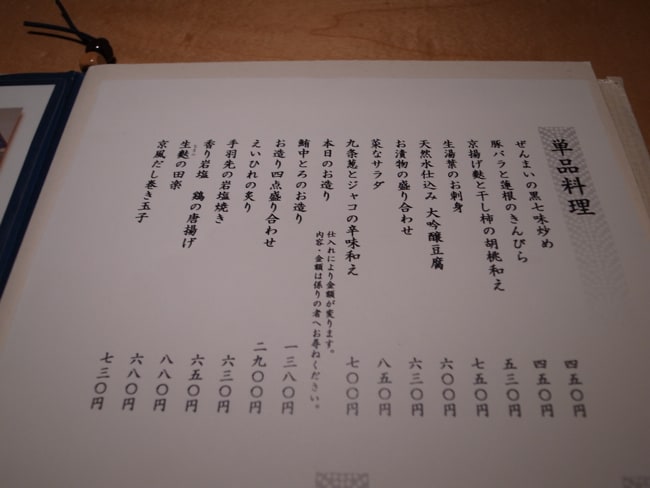 単品料理
ぜんまいの黒七味炒め 四五〇円
豚バラと蓮根のきんぴら 四五〇円
京揚げ麩と干し柿の胡桃和え 五三〇円
生湯葉のお刺身 七五〇円
天然水仕込み 大吟醸豆腐 六〇〇円
お漬物の盛り合わせ 六三〇円
菜なサラダ 八五〇円
九条葱とジャコの辛味和え 七〇〇円
本日のお造り
仕入れにより金額が変ります。
内容・金額は係りの者へお尋ねください。
鮪中とろのお造り 一三八〇円
お造り四点盛り合わせ 二九〇〇円
えいひれの炙り 六三〇円
手羽先の岩塩焼き 六五〇円
香り岩塩 鶏の唐揚げ 八八〇円
生麩の田楽 六八〇円
京風だし巻き玉子 七三〇円